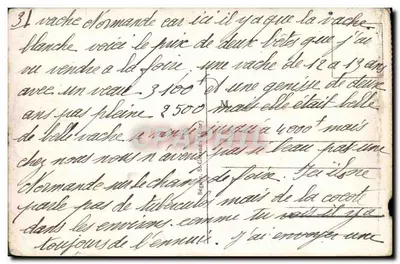 31 vache Normande car ici il y a que la vache
blanche voici le prix de deux bêtes que j'ai
vu vendre a la foire une vache de 12 a 13 ans
avec un veau 3100f et une genisse de deux
ans pas pleine 2500 mais elle était belle
de belle vache jusqu'a 4000f mais
chez nous nous n'avons pas beau pas une
Normande sur le champ de foire. Ici il se
parle pas de tuberculose mais de la cocote
dans les environs comme tu vois il y a
toujours de l'ennui. J'ai envoyer une